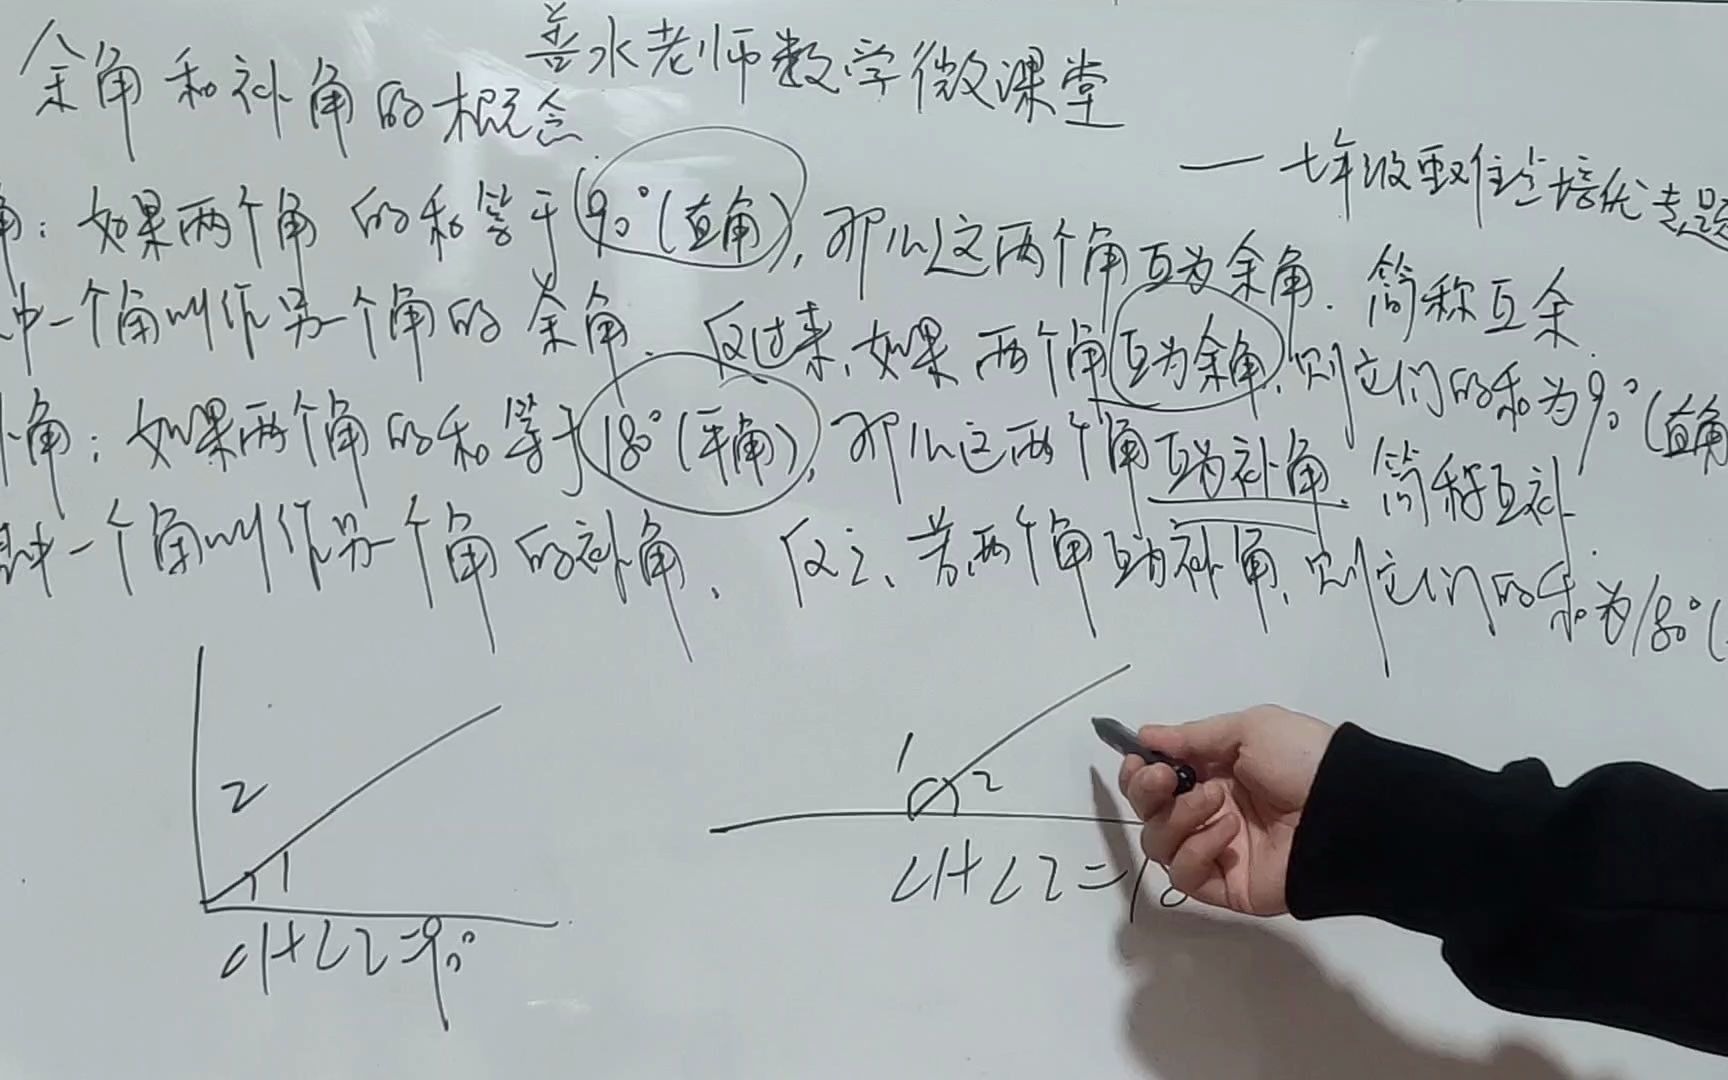 善水老师数学微课堂
余角和补角的概念
—七年级重难点培优专题
角：如果两个角的和等于90°(直角)，那么这两个角互为余角．简称互余．
中一个角叫作另一个角的余角．反过来，如果两个角互为余角，则它们的和为90°(直角
角：如果两个角的和等于180°(平角)，那么这两个角互为补角．简称互补．
其中一个角叫作另一个角的补角．反之、若两个角互为补角，则它们的和为180°(
2
1
∠1+∠2=90°
1
2
∠1+∠2=18